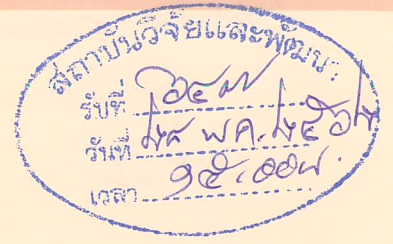 สถาบันวิจัยและพัฒนา
รับที่
วันที่ ๒๘ พค. ๒๕๖๒
เวลา ๑๕.๐๐น.